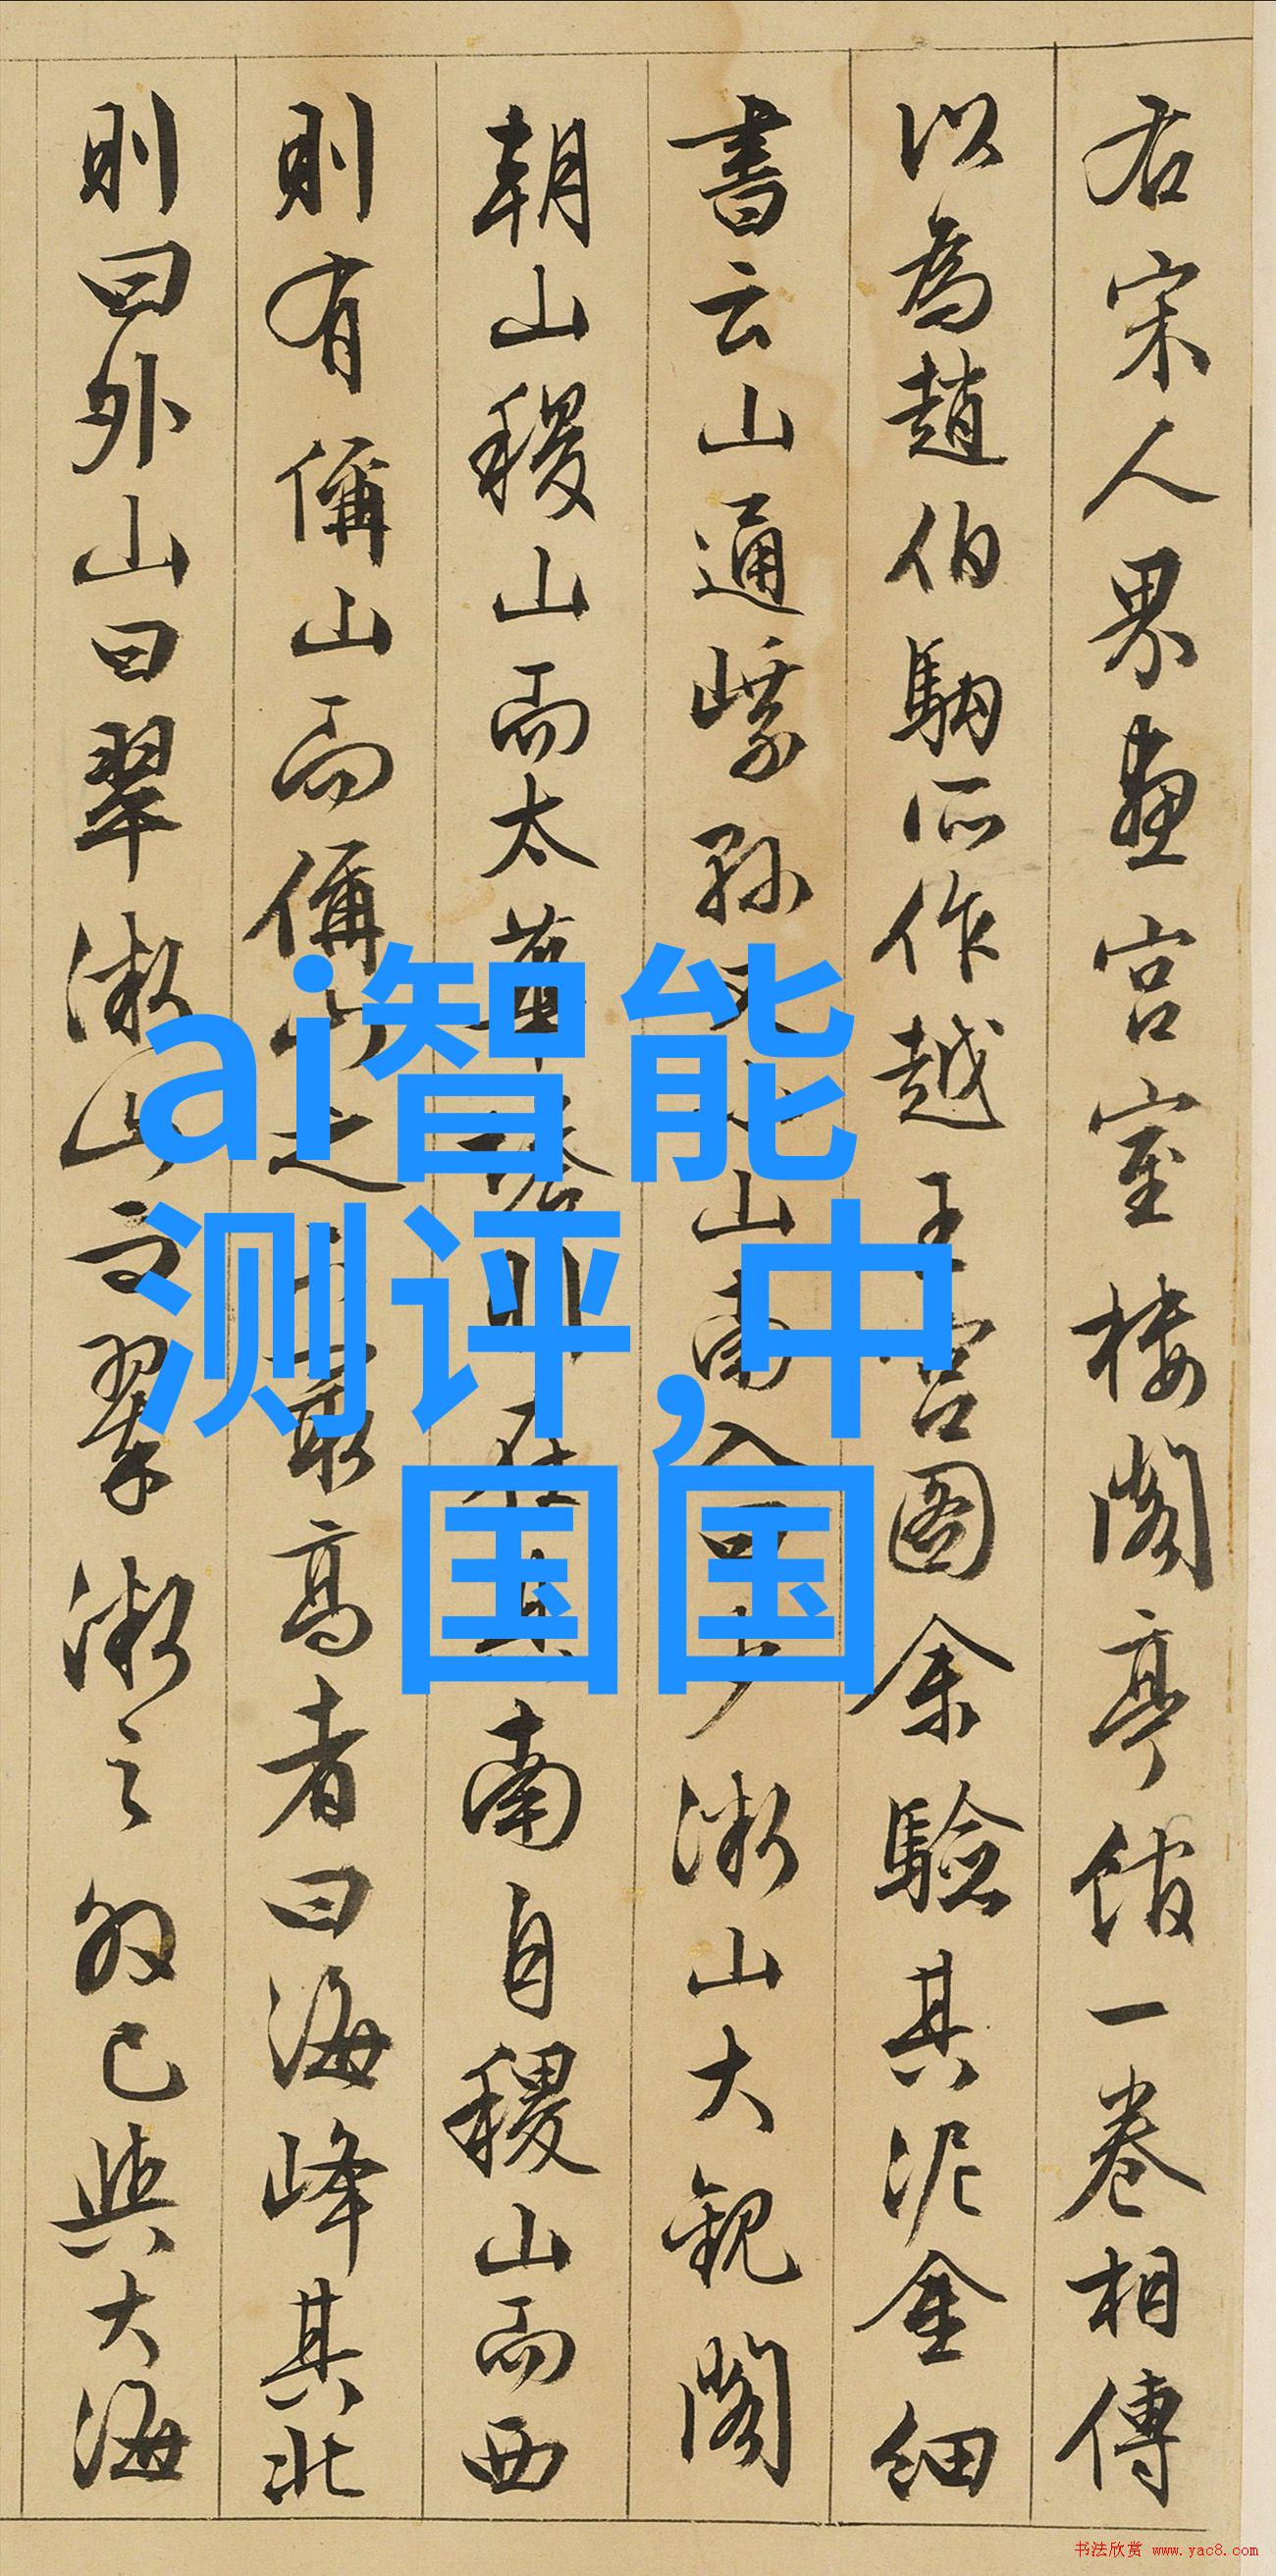 右宋人界畫宮室樓閣亭館一卷相傳
以為趙伯駒所作越王宮圖余驗其泥金細
書云山通山南入山大觀閣
朝山稷山而太則在南自稷山而西
則有偁山而偁山之最高者曰海峰其北
則曰外山曰翠山之已與大海
ai智能
测评,中
国国
书法欣赏 www.yac8.com